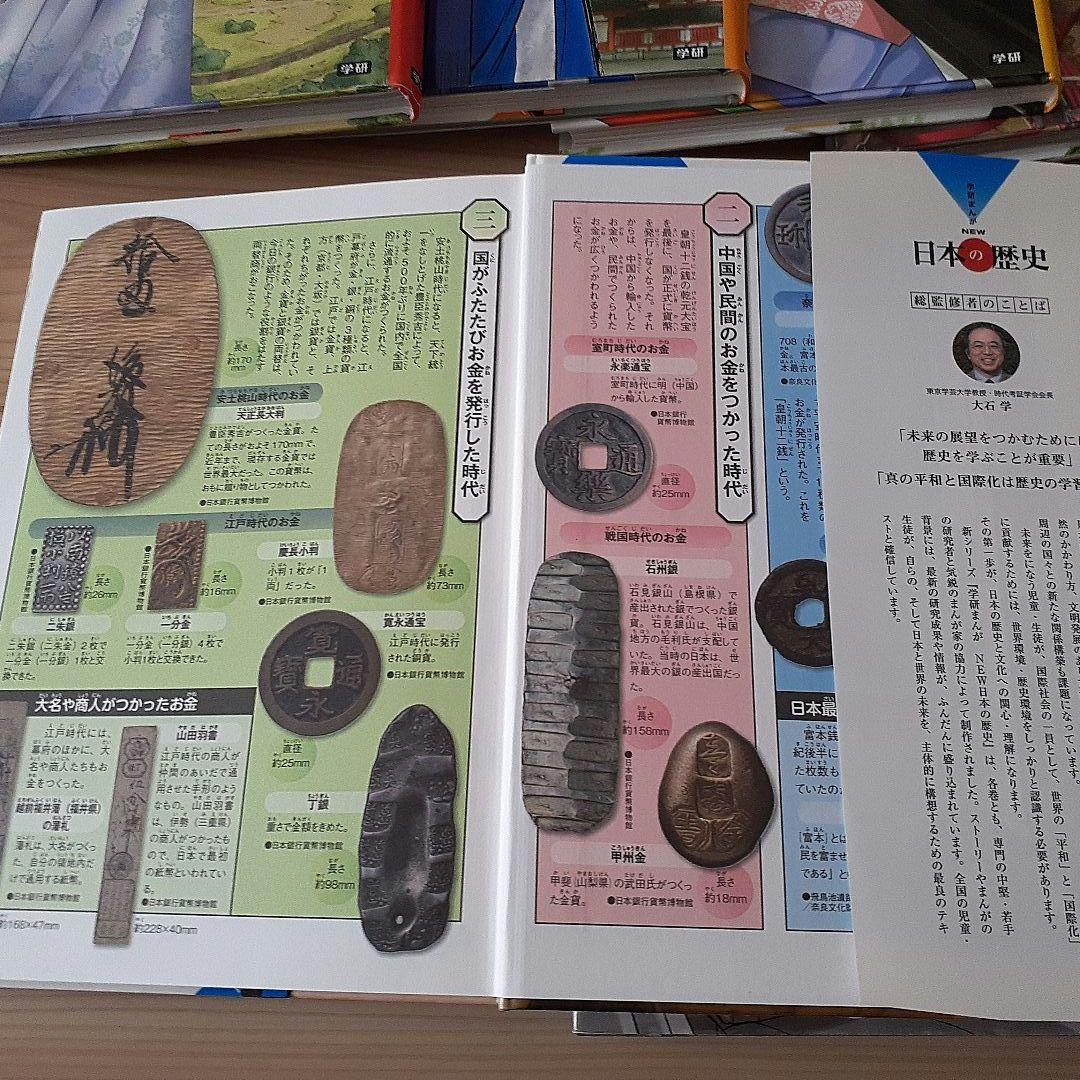 学研
学研
学研
学研まんが
NEW
日本の歴史
総監修者のことば
東京学芸大学教授・時代考証学会会長
大石 学
「未来の展望をつかむために
歴史を学ぶことが重要」
「真の平和と国際化は歴史の学習
周辺の国々との新たな関係構築も課題になっています。
未来をになう児童・生徒が、国際社会の一員として、世界の「平和」と「国際化」
に貢献するためには、世界環境・歴史環境をしっかりと認識する必要があります。
その第一歩が、日本の歴史と文化への関心・理解になります。
新シリーズ『学研まんが NEW日本の歴史』は、各巻とも、専門の中堅・若手
の研究者と気鋭のまんが家の協力によって制作されました。ストーリーやまんがの
背景には、最新の研究成果や情報が、ふんだんに盛り込まれています。全国の児童・
生徒が、自らの、そして日本と世界の未来を、主体的に構想するための最良のテキ
ストと確信しています。
二
中国や民間のお金をつかった時代
皇朝十二銭の乾元大宝
を最後に、国が正式に貨幣
を発行しなくなった。それ
からは、中国から輸入した
お金や、民間でつくられた
お金が広くつかわれるよう
になった。
室町時代のお金
永楽通宝
室町時代に明(中国)
から輸入した貨幣。
●日本銀行
貨幣博物館
直径
約25mm
戦国時代のお金
石州銀
石見銀山(島根県)で
産出された銀でつくった銀
貨。石見銀山は、中国
地方の毛利氏が支配して
いた。当時の日本は、世
界最大の銀の産出国だっ
た。
長さ
約158mm
●日本銀行貨幣博物館
甲州金
甲斐(山梨県)の武田氏がつくっ
た金貨。
●日本銀行貨幣博物館
長さ
約18mm
708(和
本最古の
●奈良文化
お金が発行された。これを
「皇朝十二銭」という。
日本最
富本銭
紀後半に
た枚数も
ていたの
「富本」とは
民を富ませ
である」と
●飛鳥池遺跡
/奈良文化財
三
国がふたたびお金を発行した時代
安土桃山時代になると、天下統
一をなしとげた豊臣秀吉によって、
およそ600年ぶりに国内で全国
的に流通するお金がつくられた。
さらに、江戸時代になると、江
戸幕府が金・銀・銅の3種類の貨
幣をつくった。江戸では金貨、上
方(京都・大坂)では銀貨と、そ
れぞれちがったお金がつかわれてい
た。そのため、金貨と銀貨の両替は、
今日の銀行のような役割をはたす
両替商がおこなった。
長さ
約170
mm
安土桃山時代のお金
天正長大判
豊臣秀吉がつくった金貨。た
ての長さがおよそ170mmで、
近年まで、現存する金貨では
世界最大だった。この貨幣は、
おもに贈り物としてつかわれた。
●日本銀行貨幣博物館
江戸時代のお金
慶長小判
小判1枚が「1
両」だった。
●日本銀行貨幣博物館
長さ
約73mm
●日本銀行貨幣博物館
長さ
約26mm
二朱銀
二朱銀(二朱金)2枚で
一分金(一分銀)1枚と交
換できた。
●日本銀行貨幣博物館
長さ
約16mm
一分金
一分金(一分銀)4枚で
小判1枚と交換できた。
寛永通宝
江戸時代に発行
された銅貨。
●日本銀行貨幣博物館
直径
約25mm
丁銀
重さで金額をきめた。
●日本銀行貨幣博物館
長さ
約98mm
大名や商人がつかったお金
江戸時代には、
幕府のほかに、大
名や商人たちもお
金をつくった。
越前福井藩(福井県)
の藩札
藩札は、大名がつくっ
た、自分の領地内だ
けで通用する紙幣。
約168×47mm
山田羽書
江戸時代の商人が
仲間のあいだで通
用させた手形のよう
なもの。山田羽書
は、伊勢(三重県)
の商人がつかったも
ので、日本で最初
の紙幣といわれてい
る。
●日本銀行貨幣博物館
約228×40mm
永楽通寳
寛永通寳